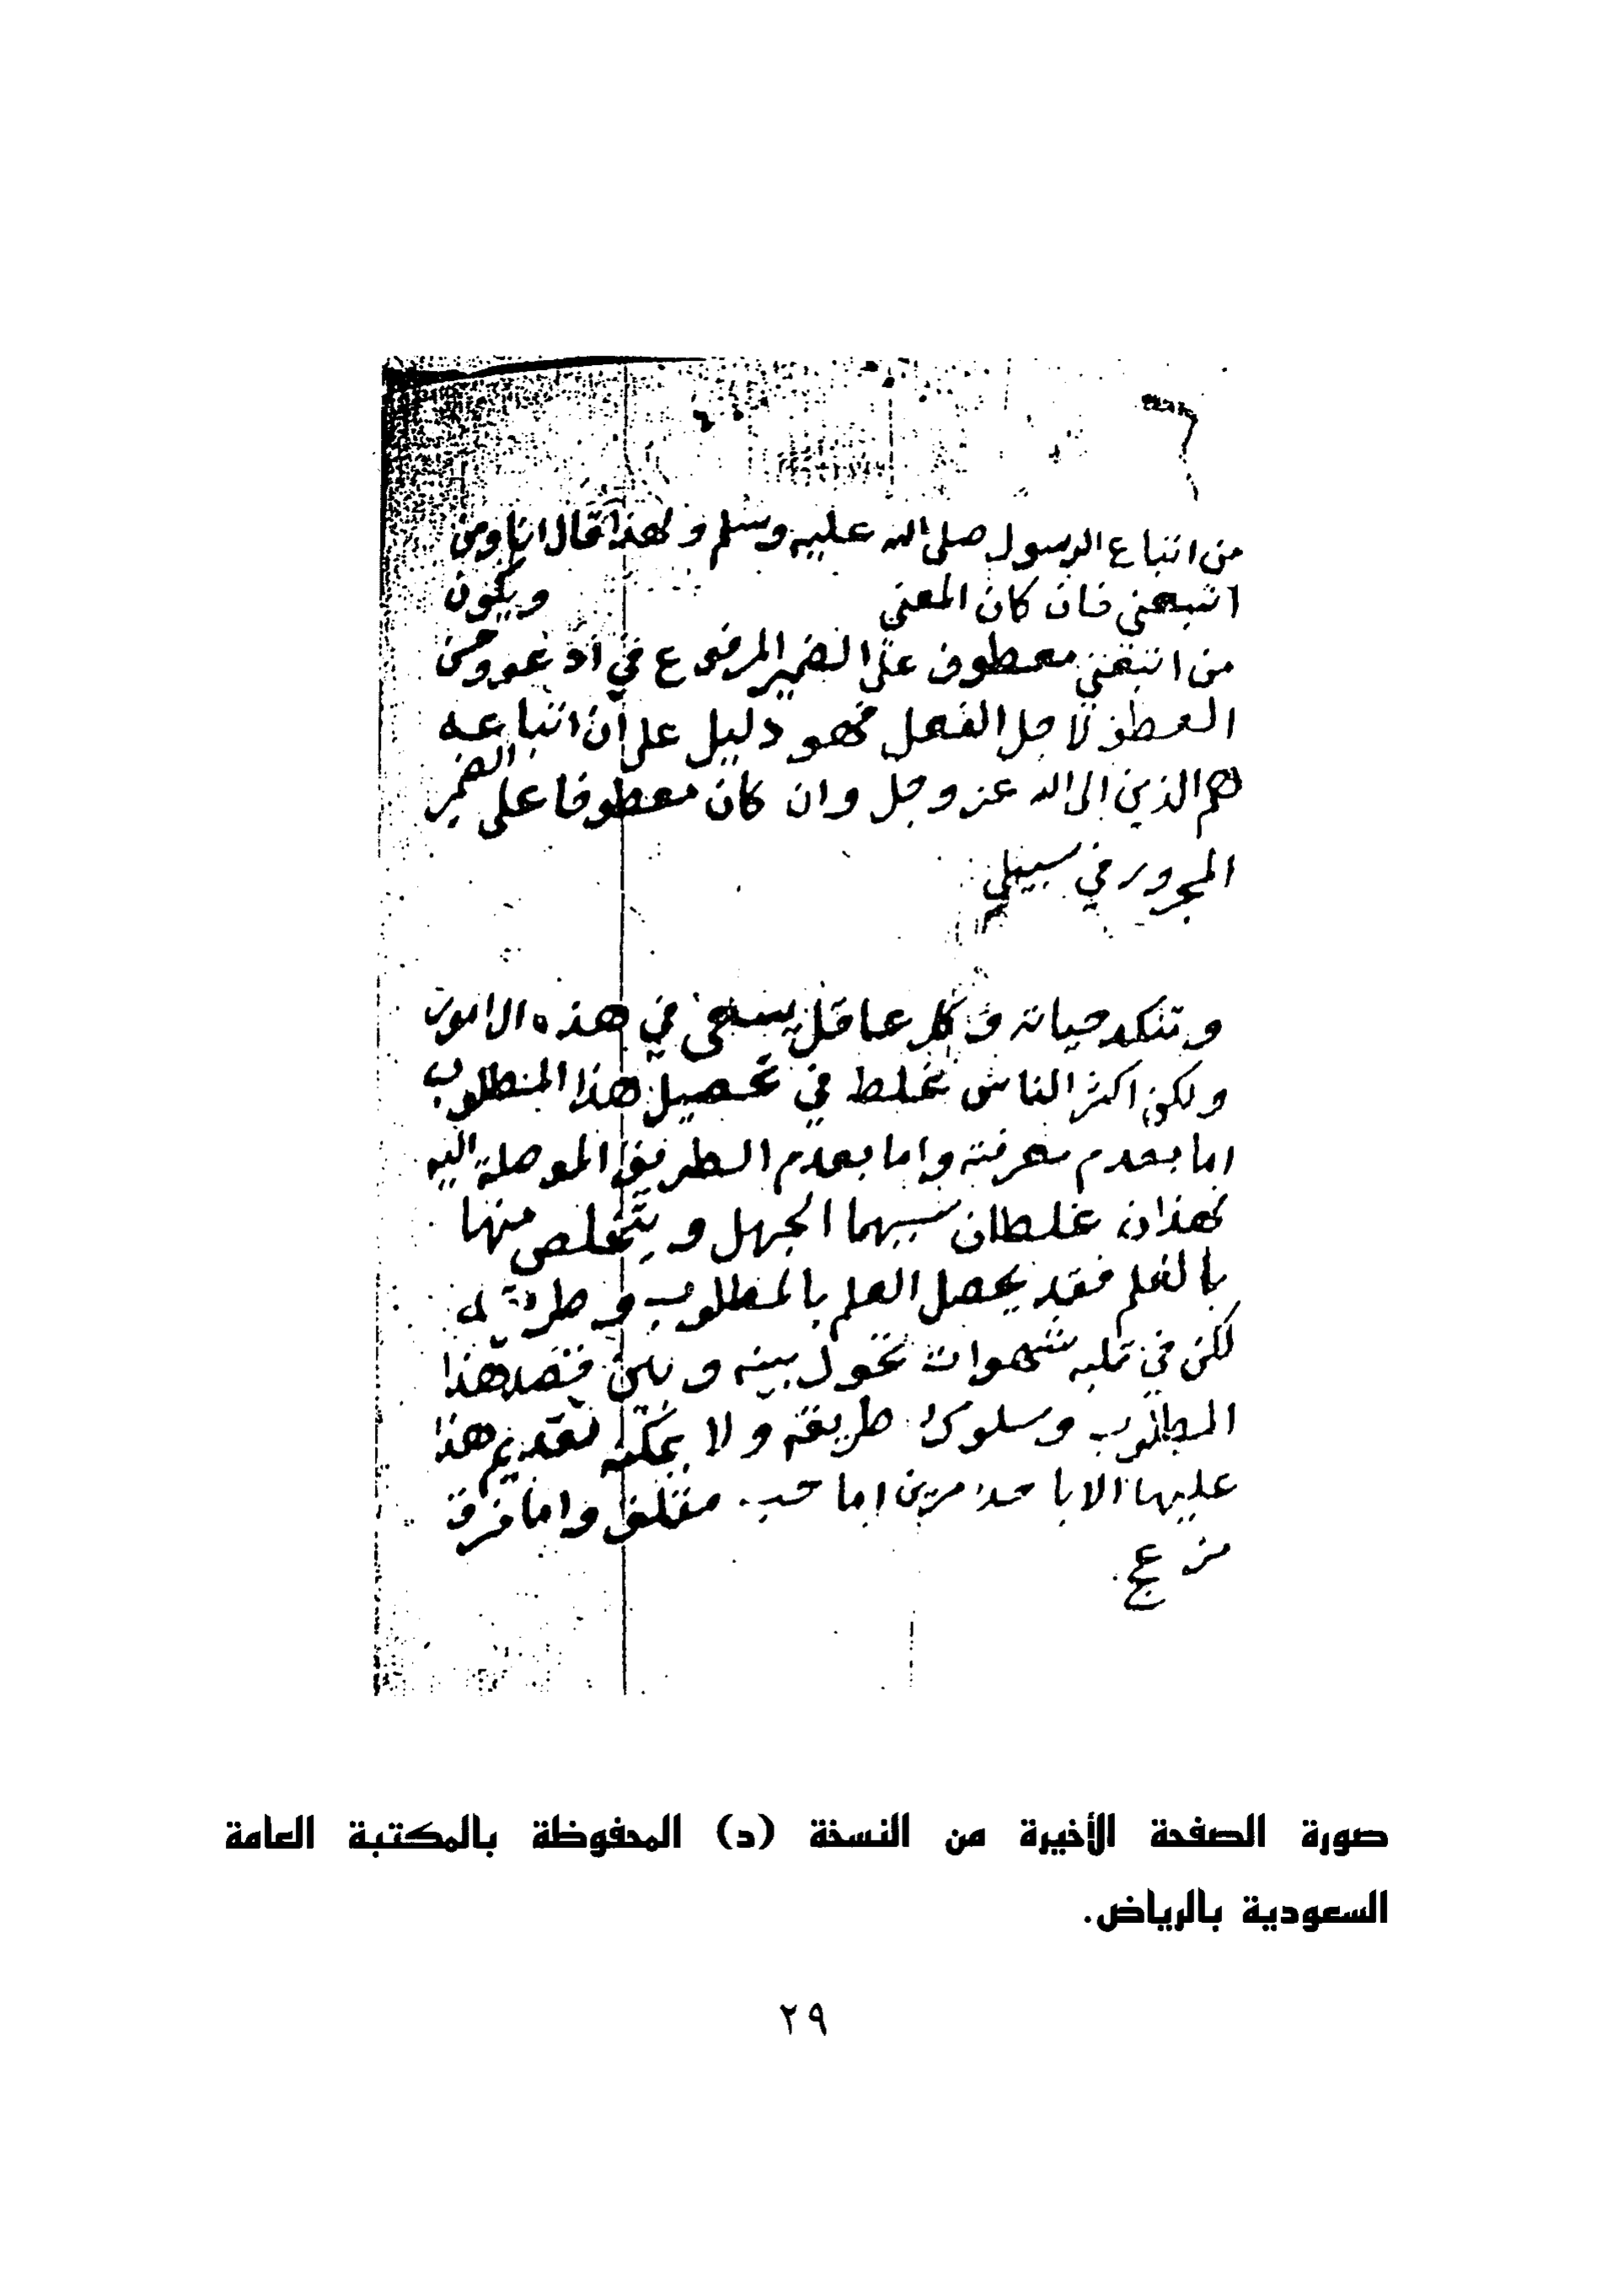 من اتباع الرسول صلى الله عليه وسلم ولهذا قال انا ومن
اتبعني فان كان المعنى ويكون
من اتبعني معطوف على الضمير المرفوع في ادعو وحسن
العطف لاجل الفصل فهو دليل على ان اتباعه
هم الذين الى الله عز وجل وان كان معطوفا على الضمير
المجرور في سبيلي
وتنكد حياته وكل عاقل يسعى في هذه الامور
ولكن اكثر الناس غلط في تحصيل هذا المطلوب
اما بعدم معرفته واما بعدم الطريق الموصلة اليه
فهذان غلطان سببهما الجهل ويتخلص منهما
بالعلم فقد يحصل العلم بالمطلوب و
لكن في قلبه شهوات تحول بينه وبين قصد هذا
المطلوب وسلوك طريقه ولا يمكنه تقديم هذا
عليها الا باحد مرين اما حب مقلق واما فرق
مزعج
صورة الصفحة الأخيرة من النسخة (د) المحفوظة بالمكتبة العامة
السعودية بالرياض.
٢٩